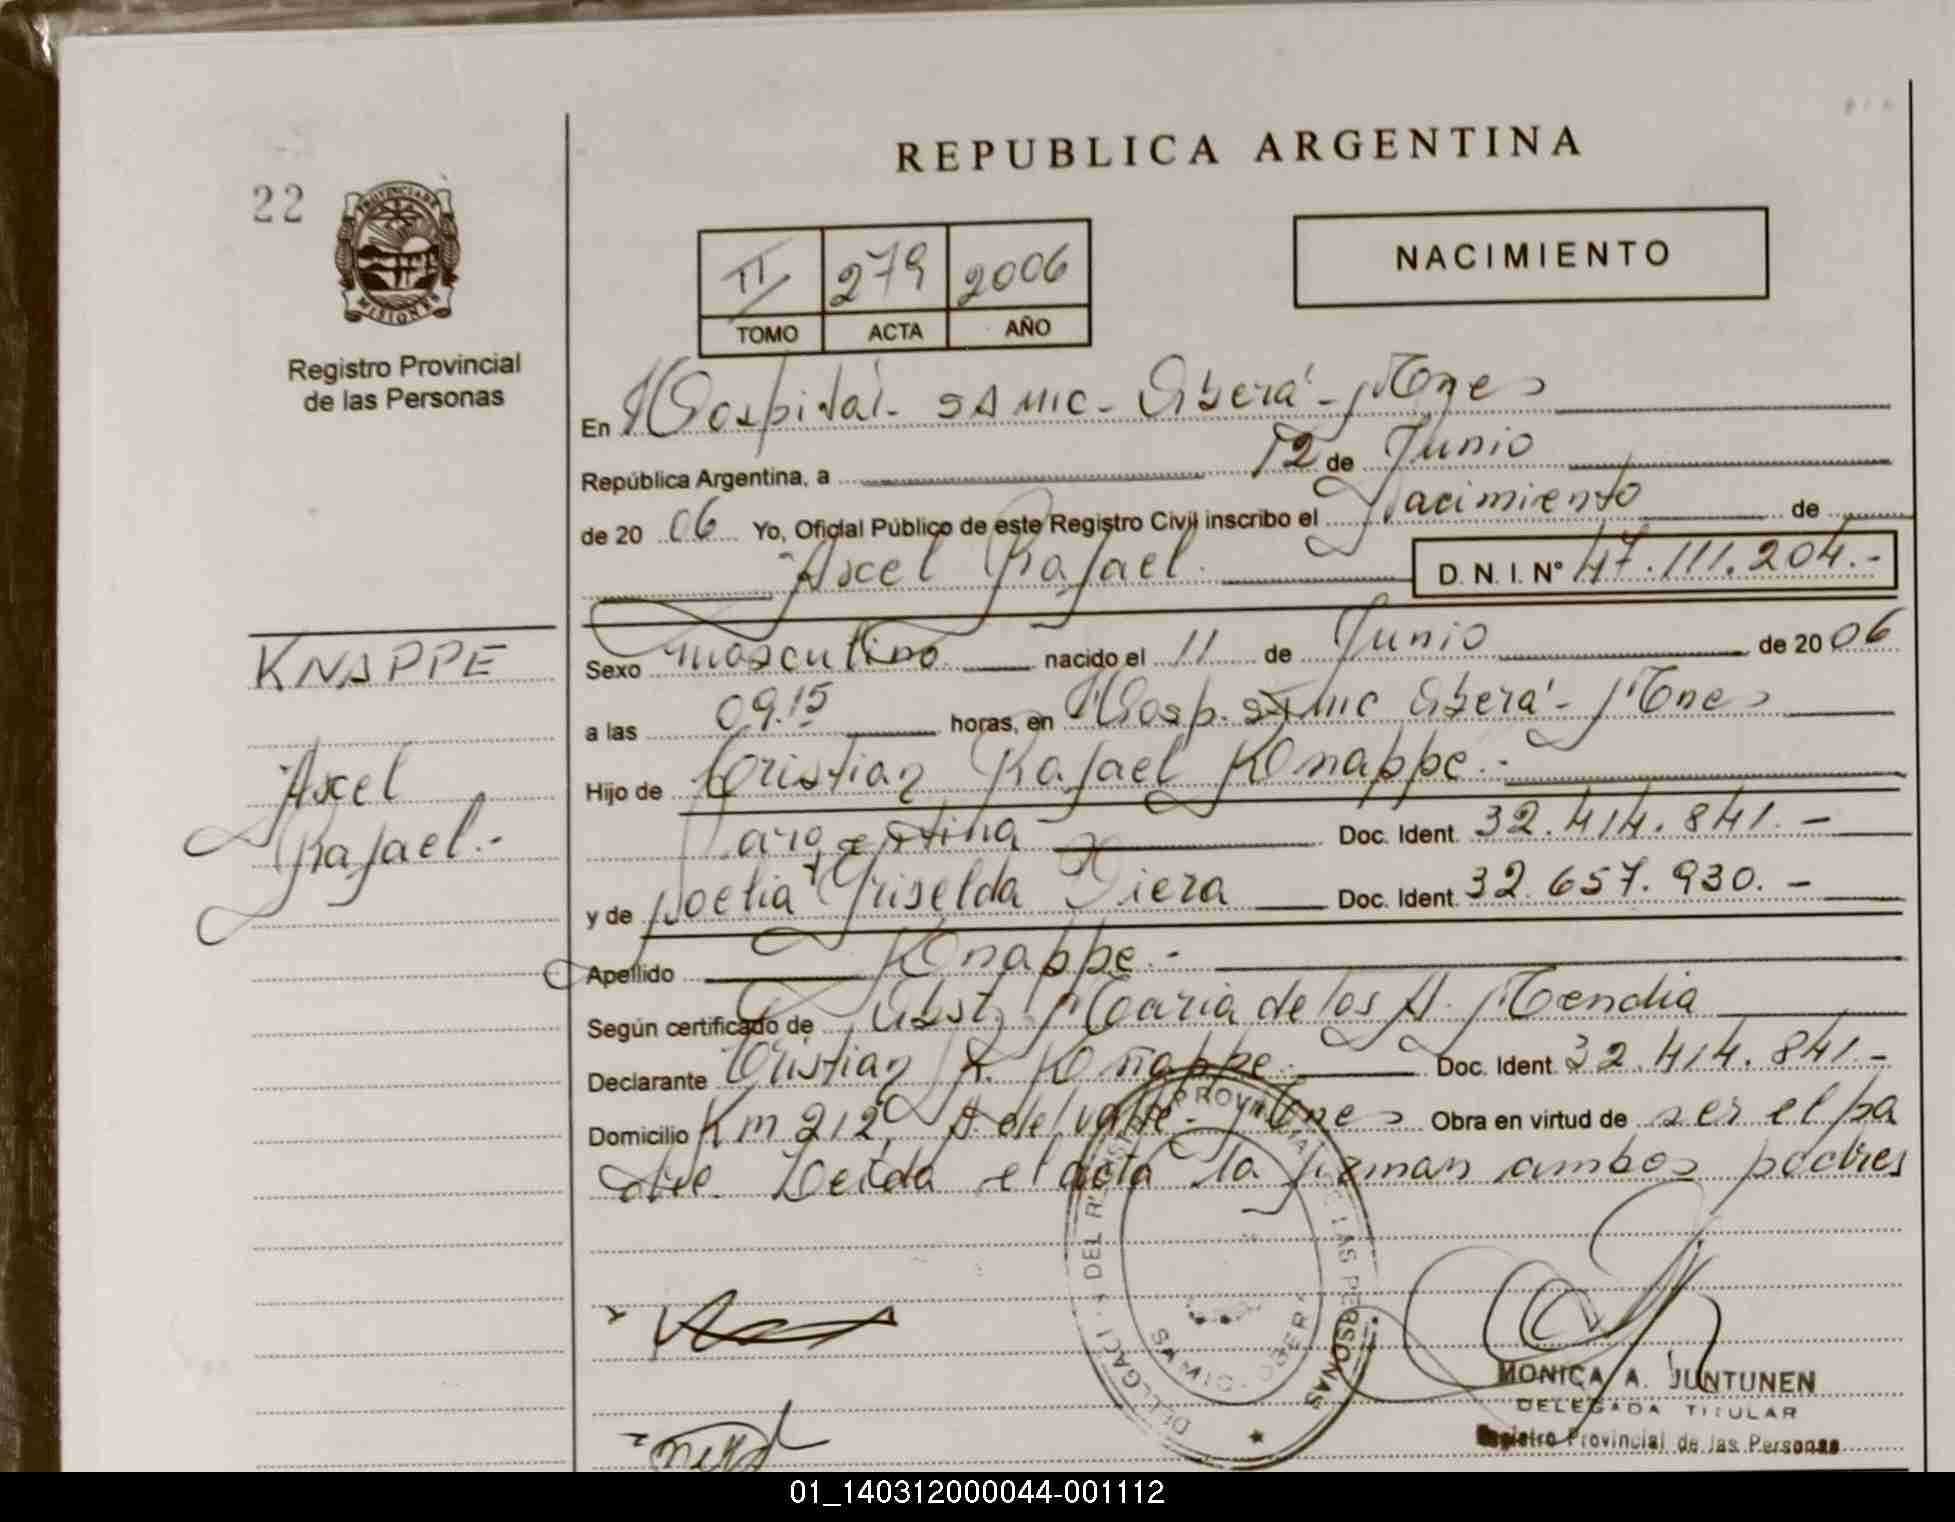 REPUBLICA ARGENTINA
22
PROVINCIA DE
MISIONES
Registro Provincial
de las Personas
II 279 2006
TOMO ACTA AÑO
NACIMIENTO
En Hospital SAMIC - Oberá - Mnes
República Argentina, a 12 de Junio
de 20 06 Yo, Oficial Público de este Registro Civil inscribo el Nacimiento de
Axel Rafael. D. N. I. Nº 47.111.204.-
KNAPPE
Axel
Rafael.-
Sexo masculino nacido el 11 de Junio de 20 06
a las 09.15 horas, en Hosp. SAMIC Oberá - Mnes
Hijo de Cristian Rafael Knappe.-
argentina Doc. Ident. 32.414.841.-
y de Noelia Griselda Doc. Ident. 32.657.930.-
Apellido Knappe.-
Según certificado de Obst. Maria de los A. Mendia
Declarante Cristian R. Knappe.- Doc. Ident. 32.414.841.-
Domicilio Km 212, A. del Valle - Mnes Obra en virtud de ser el pa
dre. Leída el acta la firman ambos padres
PROVINCIAL DE LAS PERSONAS
MONICA A. JUNTUNEN
DELEGADA TITULAR
Registro Provincial de las Personas
01_140312000044-001112